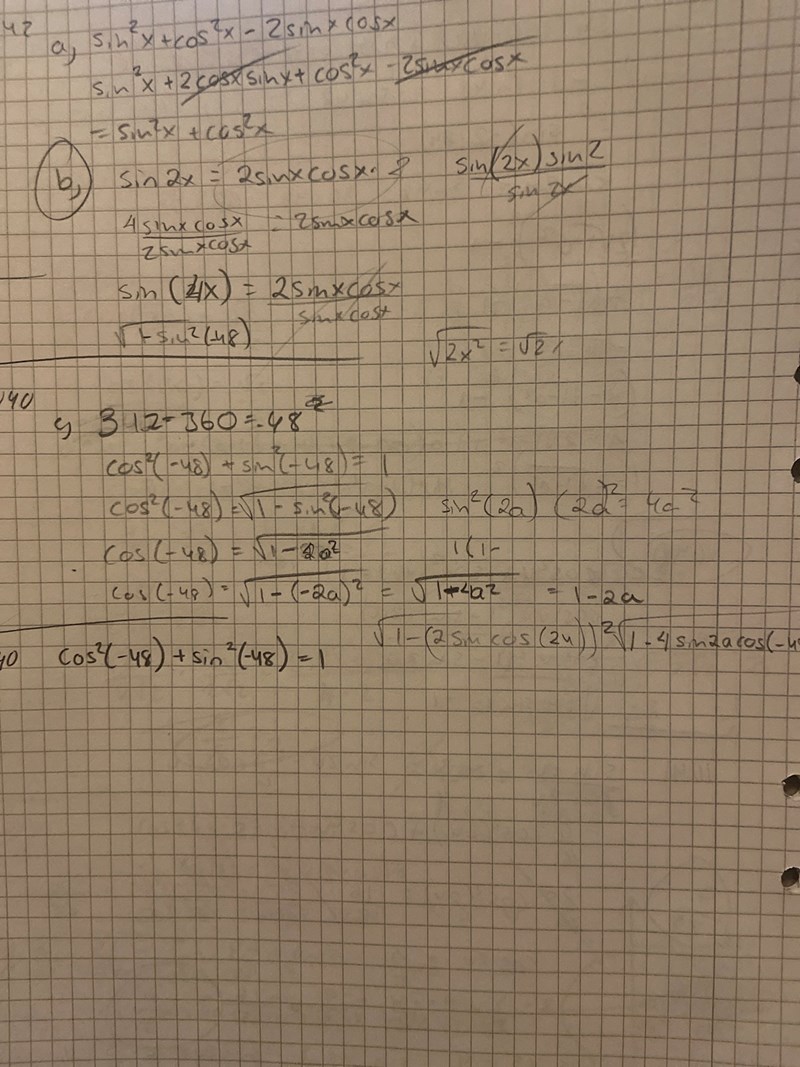 a) sin²x + cos²x - 2sinx cosx
sin²x + 2cosx sinx + cos²x - 2sinx cosx
= sin²x + cos²x
b) sin2x = 2sinx cosx · sin(2x) sin2
4sinx cosx = 2sinx cosx
2sinx cosx
sin(4x) = 2sinx cosx
sinx cosx
√1-sin²(-48)
√2x² = √2
c) 312-360=-48
cos²(-48) + sin²(-48) = 1
cos²(-48) = √1 - sin²(-48) sin²(2a) (2a)² = 4a²
cos(-48) = √1-2a² 1(1-
cos(-48) = √1-(-2a)² = √1-4a² = 1-2a
cos²(-48) + sin²(-48) = 1